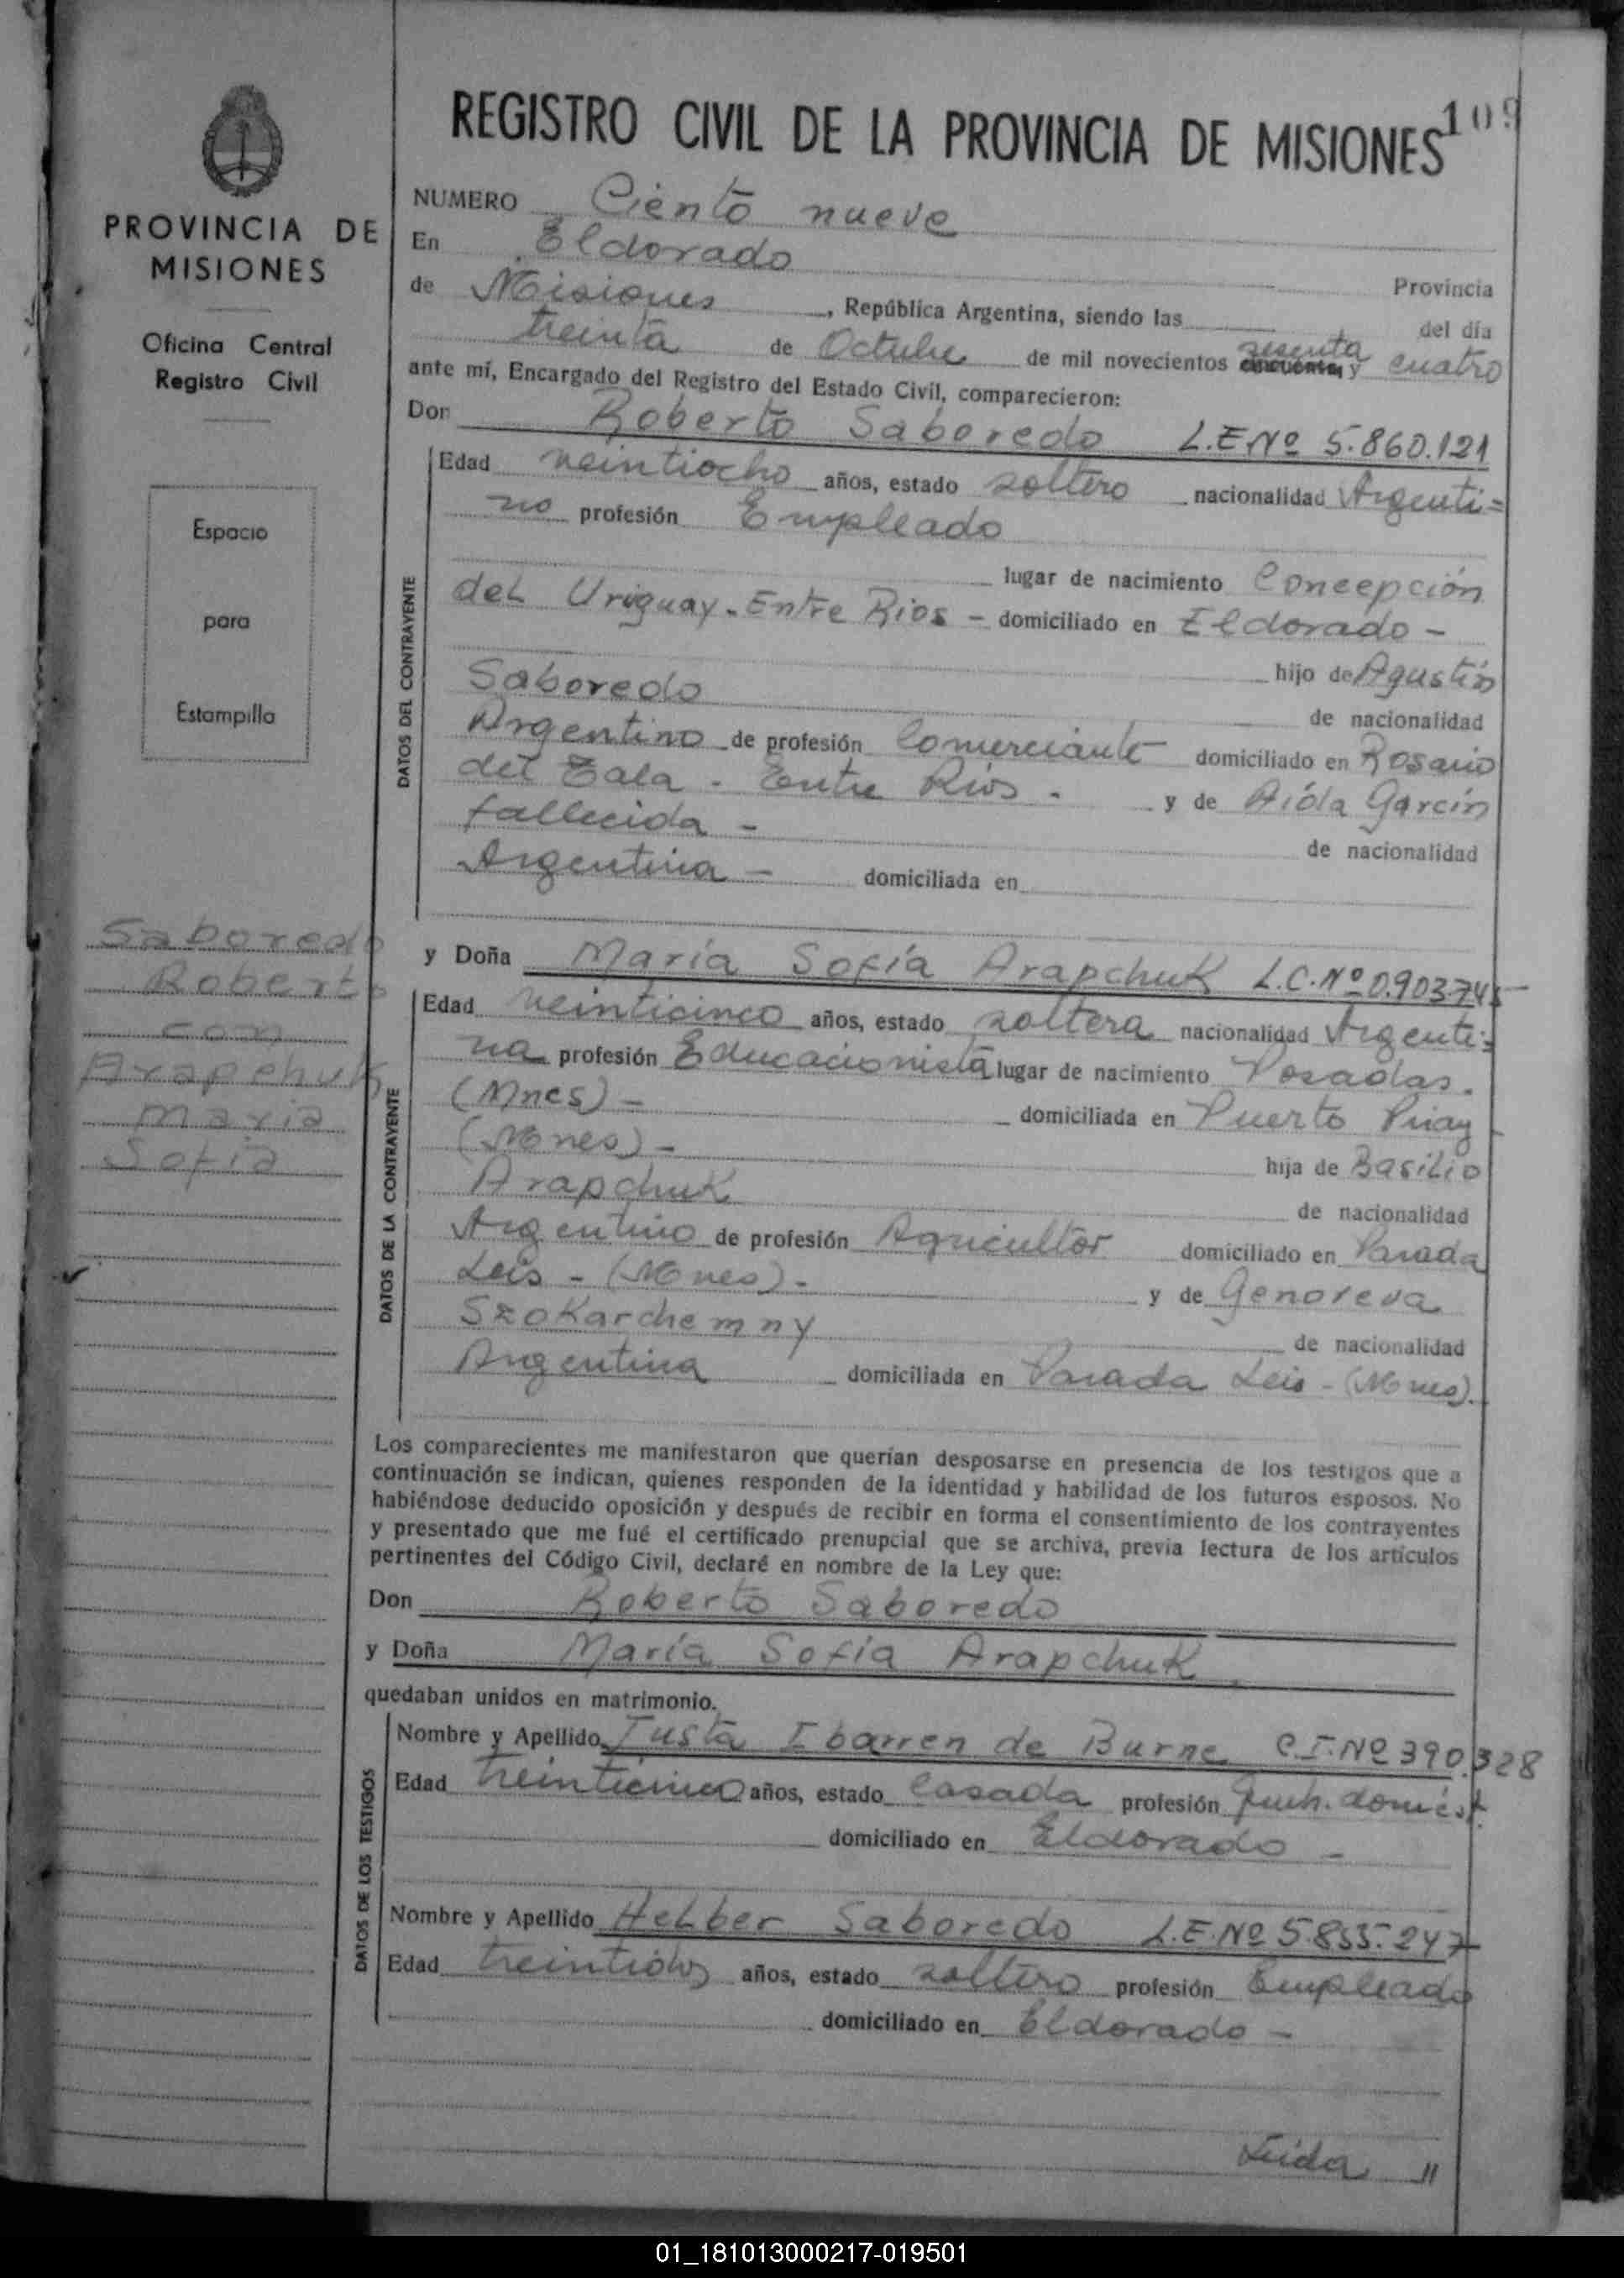 REGISTRO CIVIL DE LA PROVINCIA DE MISIONES 109
PROVINCIA DE
MISIONES
Oficina Central
Registro Civil
Espacio
para
Estampilla
Saboredo
Roberto
con
Arapchuk
Maria
Sofia
NUMERO Ciento nueve
En Eldorado Provincia
de Misiones, República Argentina, siendo las del día
treinta de Octubre de mil novecientos sesenta y cuatro
ante mí, Encargado del Registro del Estado Civil, comparecieron:
Don Roberto Saboredo L.E Nº 5.860.121
DATOS DEL CONTRAYENTE
Edad veintiocho años, estado soltero nacionalidad Argenti=
no profesión Empleado
lugar de nacimiento Concepción
del Uruguay - Entre Rios - domiciliado en Eldorado -
hijo de Agustín
Saboredo de nacionalidad
Argentino de profesión Comerciante domiciliado en Rosario
del Tala - Entre Rios - y de Aída García
fallecida - de nacionalidad
Argentina - domiciliada en
y Doña María Sofía Arapchuk L.C. Nº 0.903.745
DATOS DE LA CONTRAYENTE
Edad veinticinco años, estado soltera nacionalidad Argenti=
na profesión Educacionista lugar de nacimiento Posadas.
(Mnes) - domiciliada en Puerto Piray
(Mnes) - hija de Basilio
Arapchuk de nacionalidad
Argentino de profesión Agricultor domiciliado en Parada
Leis - (Mnes) - y de Genoveva
Szokarchemny de nacionalidad
Argentina domiciliada en Parada Leis - (Mnes).
Los comparecientes me manifestaron que querían desposarse en presencia de los testigos que a
continuación se indican, quienes responden de la identidad y habilidad de los futuros esposos. No
habiéndose deducido oposición y después de recibir en forma el consentimiento de los contrayentes
y presentado que me fué el certificado prenupcial que se archiva, previa lectura de los artículos
pertinentes del Código Civil, declaré en nombre de la Ley que:
Don Roberto Saboredo
y Doña María Sofía Arapchuk
quedaban unidos en matrimonio.
DATOS DE LOS TESTIGOS
Nombre y Apellido Justa Ibarren de Burne C.I. Nº 390.328
Edad treinticinco años, estado Casada profesión Queh. domést.
domiciliado en Eldorado -
Nombre y Apellido Helber Saboredo L.E. Nº 5.855.247
Edad años, estado soltero profesión Empleado
domiciliado en Eldorado -
Leida "
01_181013000217-019501